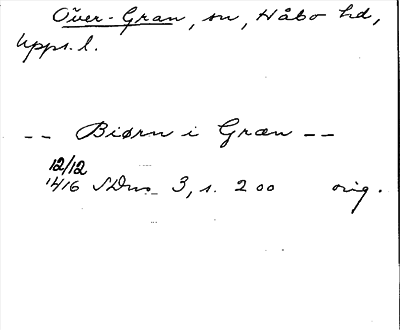 Över-Gran, sn, Håbo hd,
Upps. l.
-- Biørn i Græn --
12/12
1416 SDns 3, s. 200 orig.